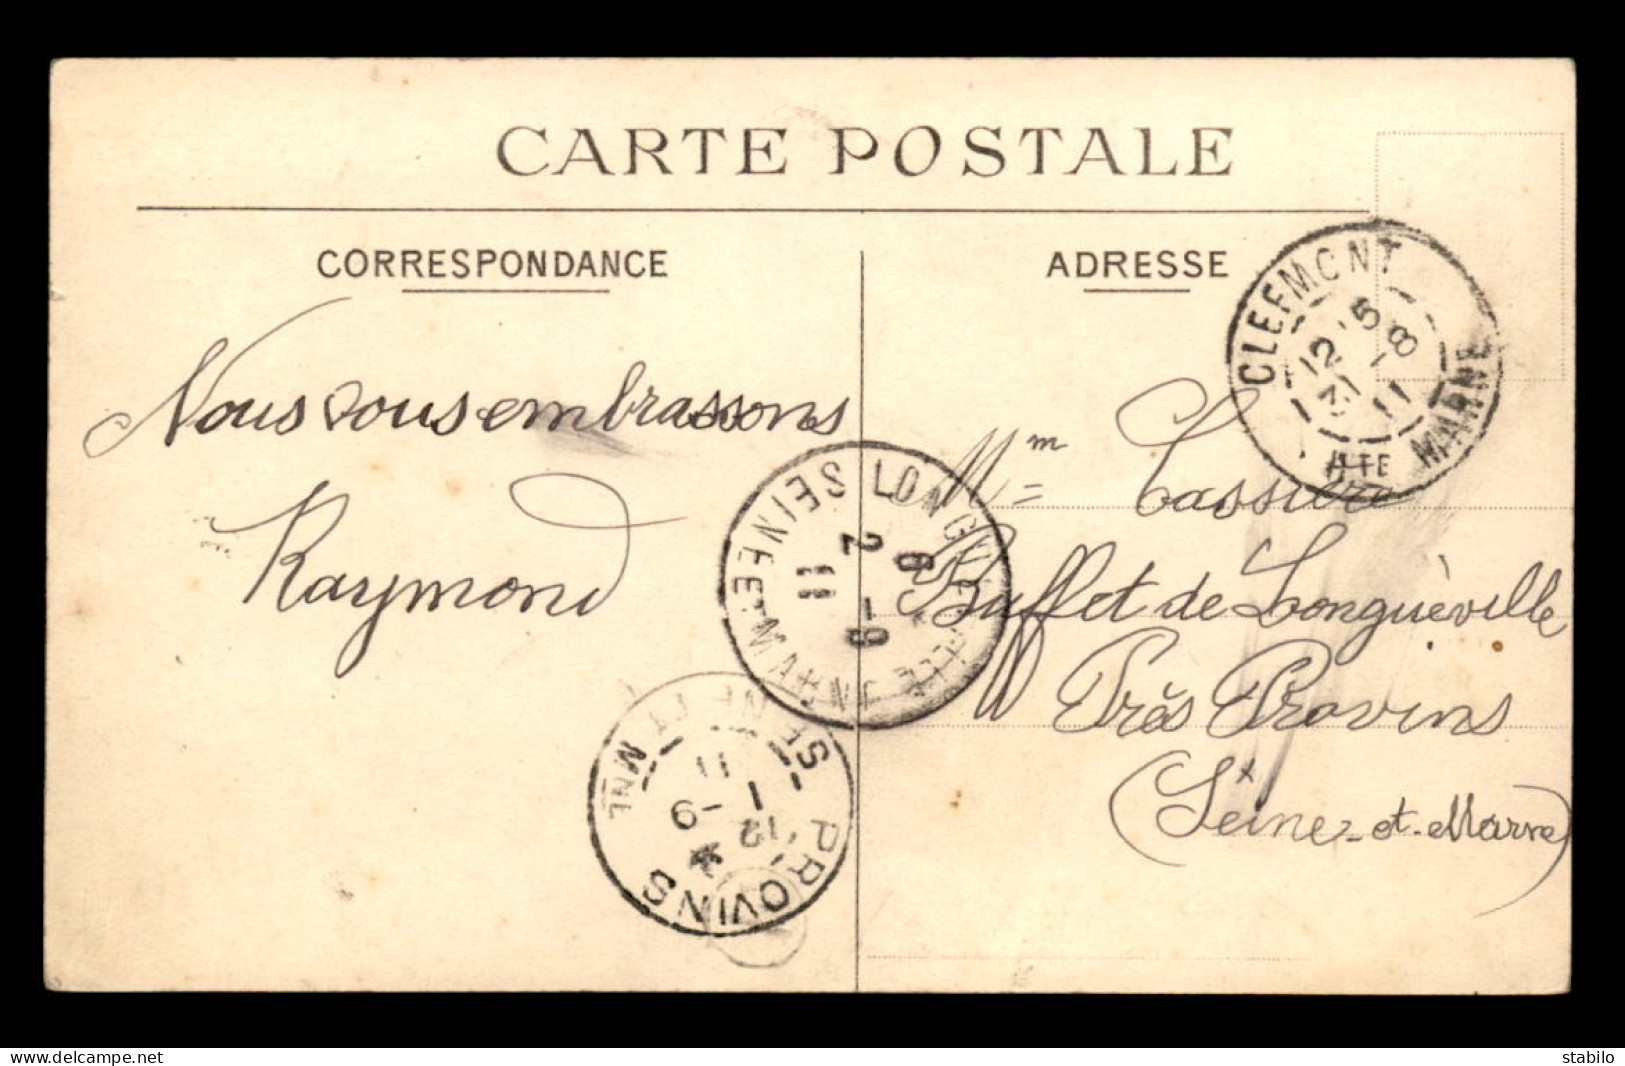 CARTE POSTALE
CORRESPONDANCE
ADRESSE
Nous vous embrassons
Raymond
Mme Cassière
Buffet de Longuèville
Près Provins
(Seine-et-Marne)
CLEFMONT
HTE MARNE
12-5
31-8
11
LONGUEVILLE
SEINE-ET-MARNE
2-9
11
PROVINS
SEINE ET MNE
12
1-9
11
www.delcampe.net
stabilo